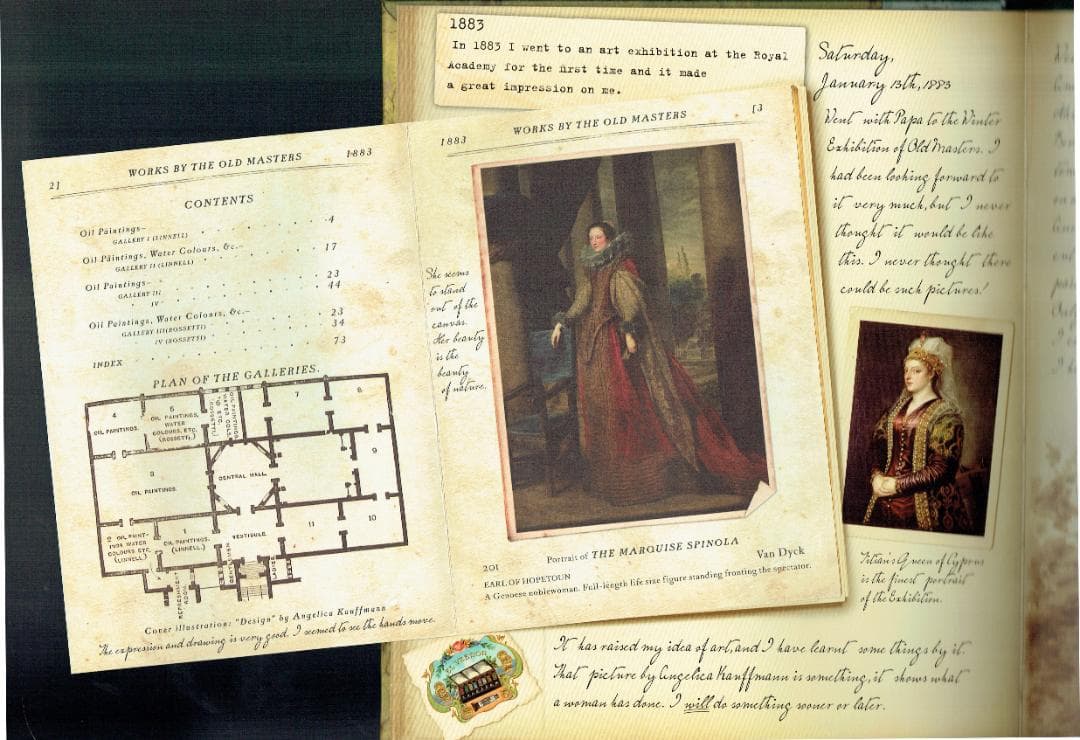 1883
In 1883 I went to an art exhibition at the Royal
Academy for the first time and it made
a great impression on me.
Saturday,
January 13th, 1883
Went with Papa to the Winter
Exhibition of Old Masters. I
had been looking forward to
it very much, but I never
thought it would be like
this. I never thought there
could be such pictures!
21 WORKS BY THE OLD MASTERS 1883
CONTENTS
Oil Paintings— 4
GALLERY I (LINNELL)
Oil Paintings, Water Colours, &c.— 17
GALLERY II (LINNELL)
Oil Paintings— 23
GALLERY III 44
" IV
Oil Paintings, Water Colours, &c.— 23
GALLERY III (ROSSETTI) 34
IV (ROSSETTI)
INDEX 73
PLAN OF THE GALLERIES.
4
OIL PAINTINGS.
5
OIL PAINTINGS,
WATER
COLOURS, ETC.
(ROSSETTI.)
7
8
9
3
OIL PAINTINGS.
CENTRAL HALL
2 OIL PAINT-
INGS WATER
COLOURS ETC.
(LINNELL)
1
OIL PAINTINGS.
(LINNELL.)
VESTIBULE.
11
10
REFRESHMENT
ROOM
GENTLEMEN
LADIES
Cover illustration: "Design" by Angelica Kauffmann
The expression and drawing is very good. I seemed to see the hands move.
1883 WORKS BY THE OLD MASTERS [3
She seems
to stand
out of the
canvas.
Her beauty
is the
beauty
of nature.
201 Portrait of THE MARQUISE SPINOLA Van Dyck
EARL OF HOPETOUN
A Genoese noblewoman. Full-length life size figure standing fronting the spectator.
Titian's Queen of Cyprus
is the finest portrait
of the Exhibition.
It has raised my idea of art, and I have learnt some things by it.
That picture by Angelica Kauffmann is something, it shows what
a woman has done. I will do something sooner or later.